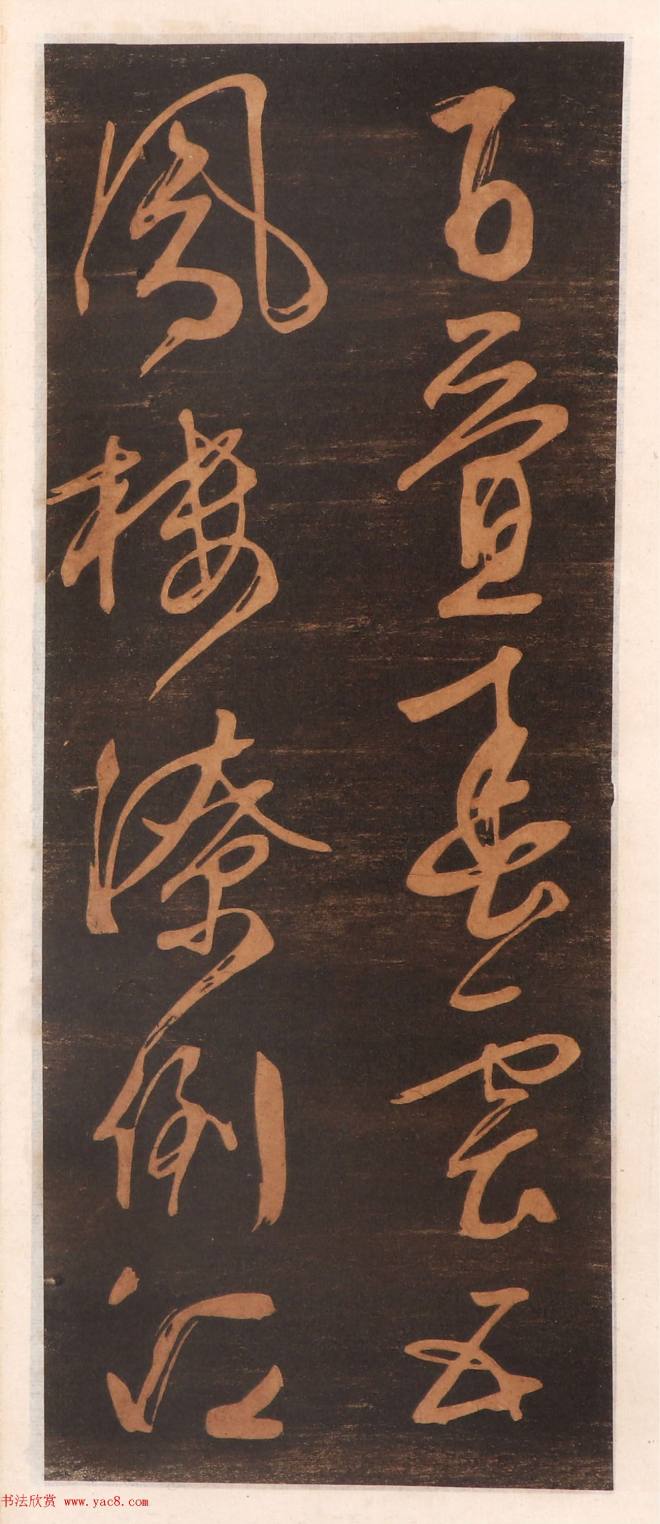 百疊春雲五
鳳樓潦倒江
书法欣赏 www.yac8.com